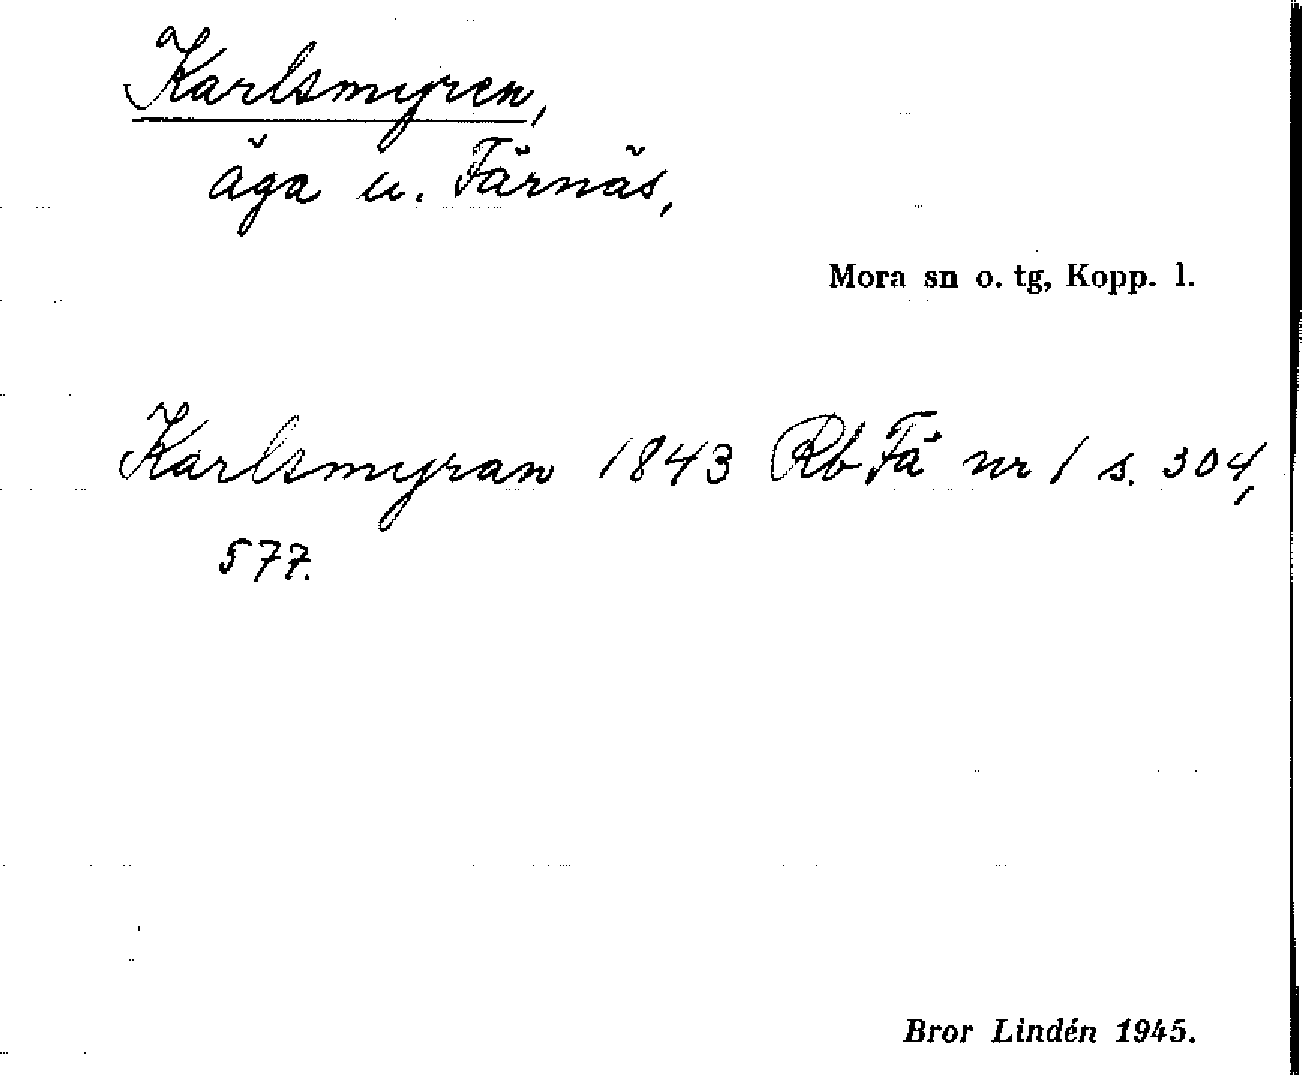 Karlsmyren,
äga u. Färnäs,
Mora sn o. tg, Kopp. l.
Karlsmyran 1843 Rb Fä nr 1 s. 304,
577.
Bror Lindén 1945.